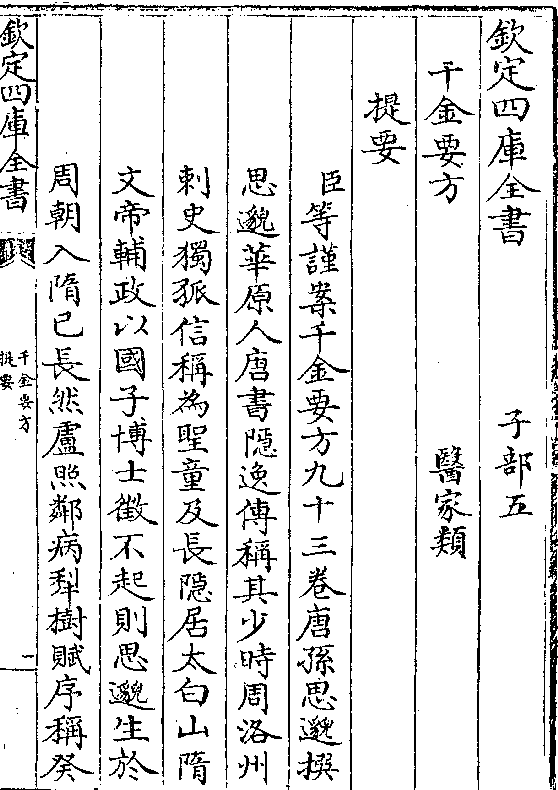 欽定四庫全書　子部五
千金要方　醫家類
提要
臣等謹案千金要方九十三卷唐孫思邈撰
思邈華原人唐書隠逸傳稱其少時周洛州
刺史獨孤信稱為聖童及長隠居太白山隋
文帝輔政以國子博士徵不起則思邈生於
周朝入隋已長然盧照鄰病犁樹賦序稱癸
欽定四庫全書
千金要方
提要
一